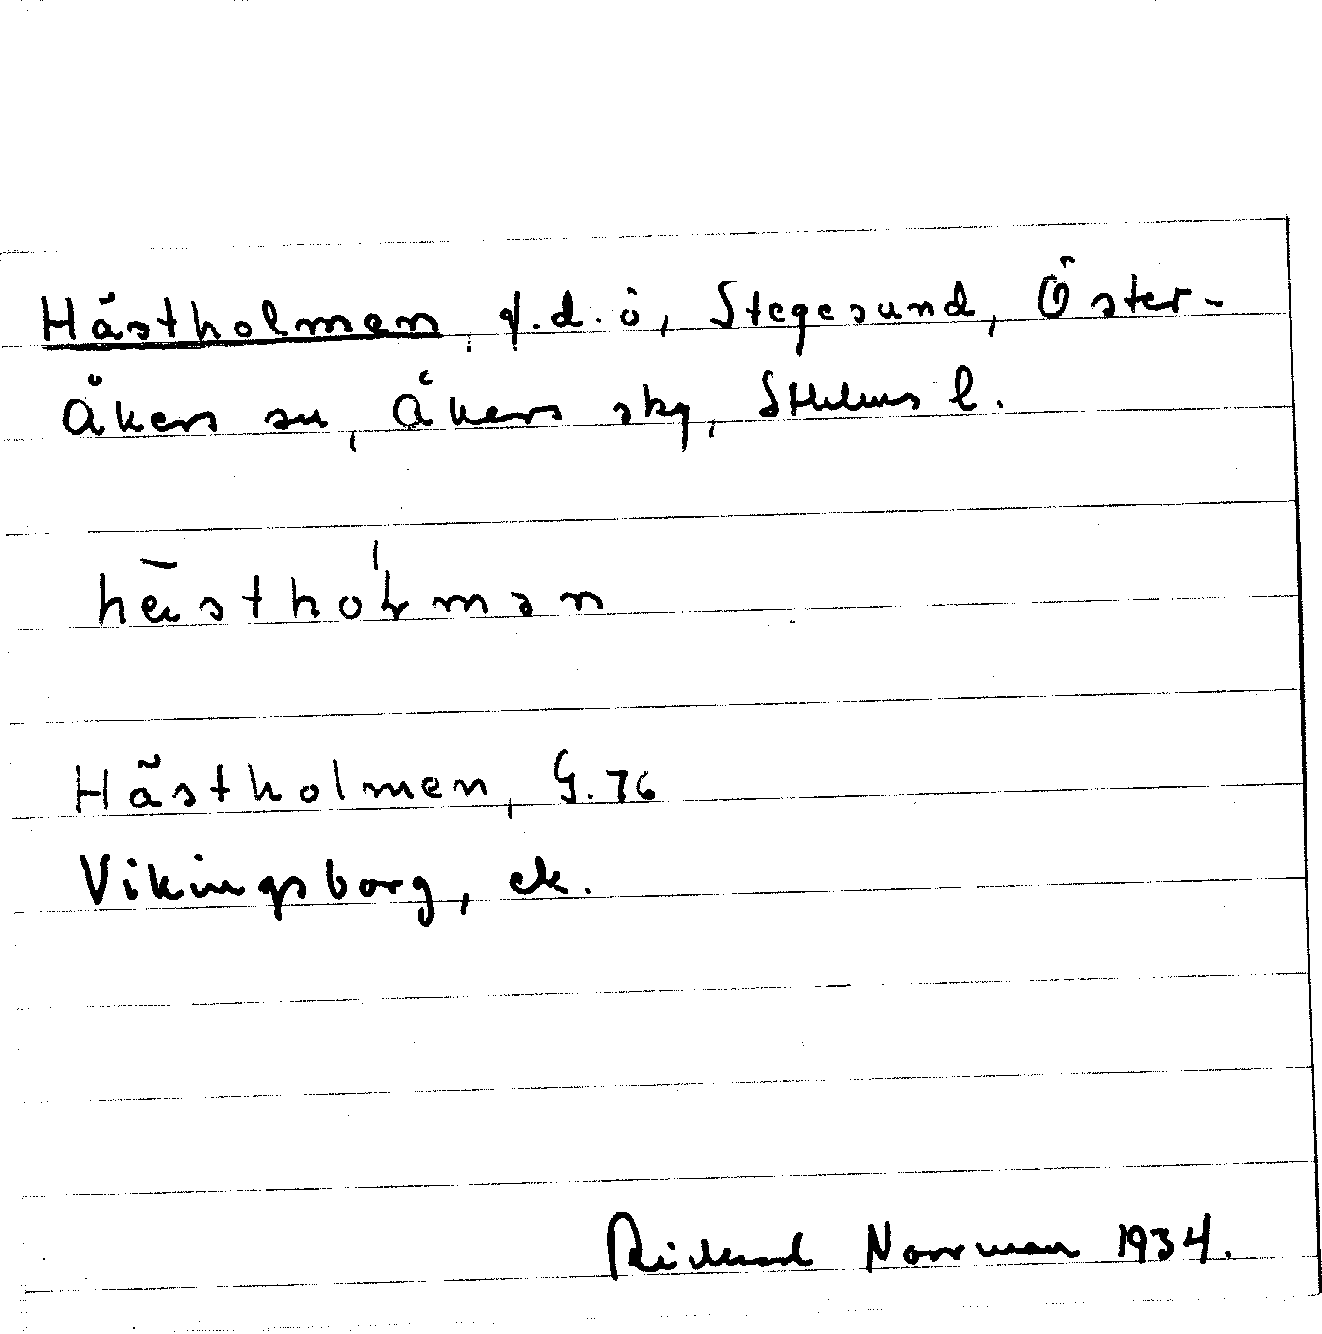 Hästholmen, f.d. ö, Stegesund, Öster-
Åkers sn, Åkers skg, Sthlms l.
hästholman
Hästholmen, G. 76
Vikingsborg, ek.
Rickard Norrman 1934.